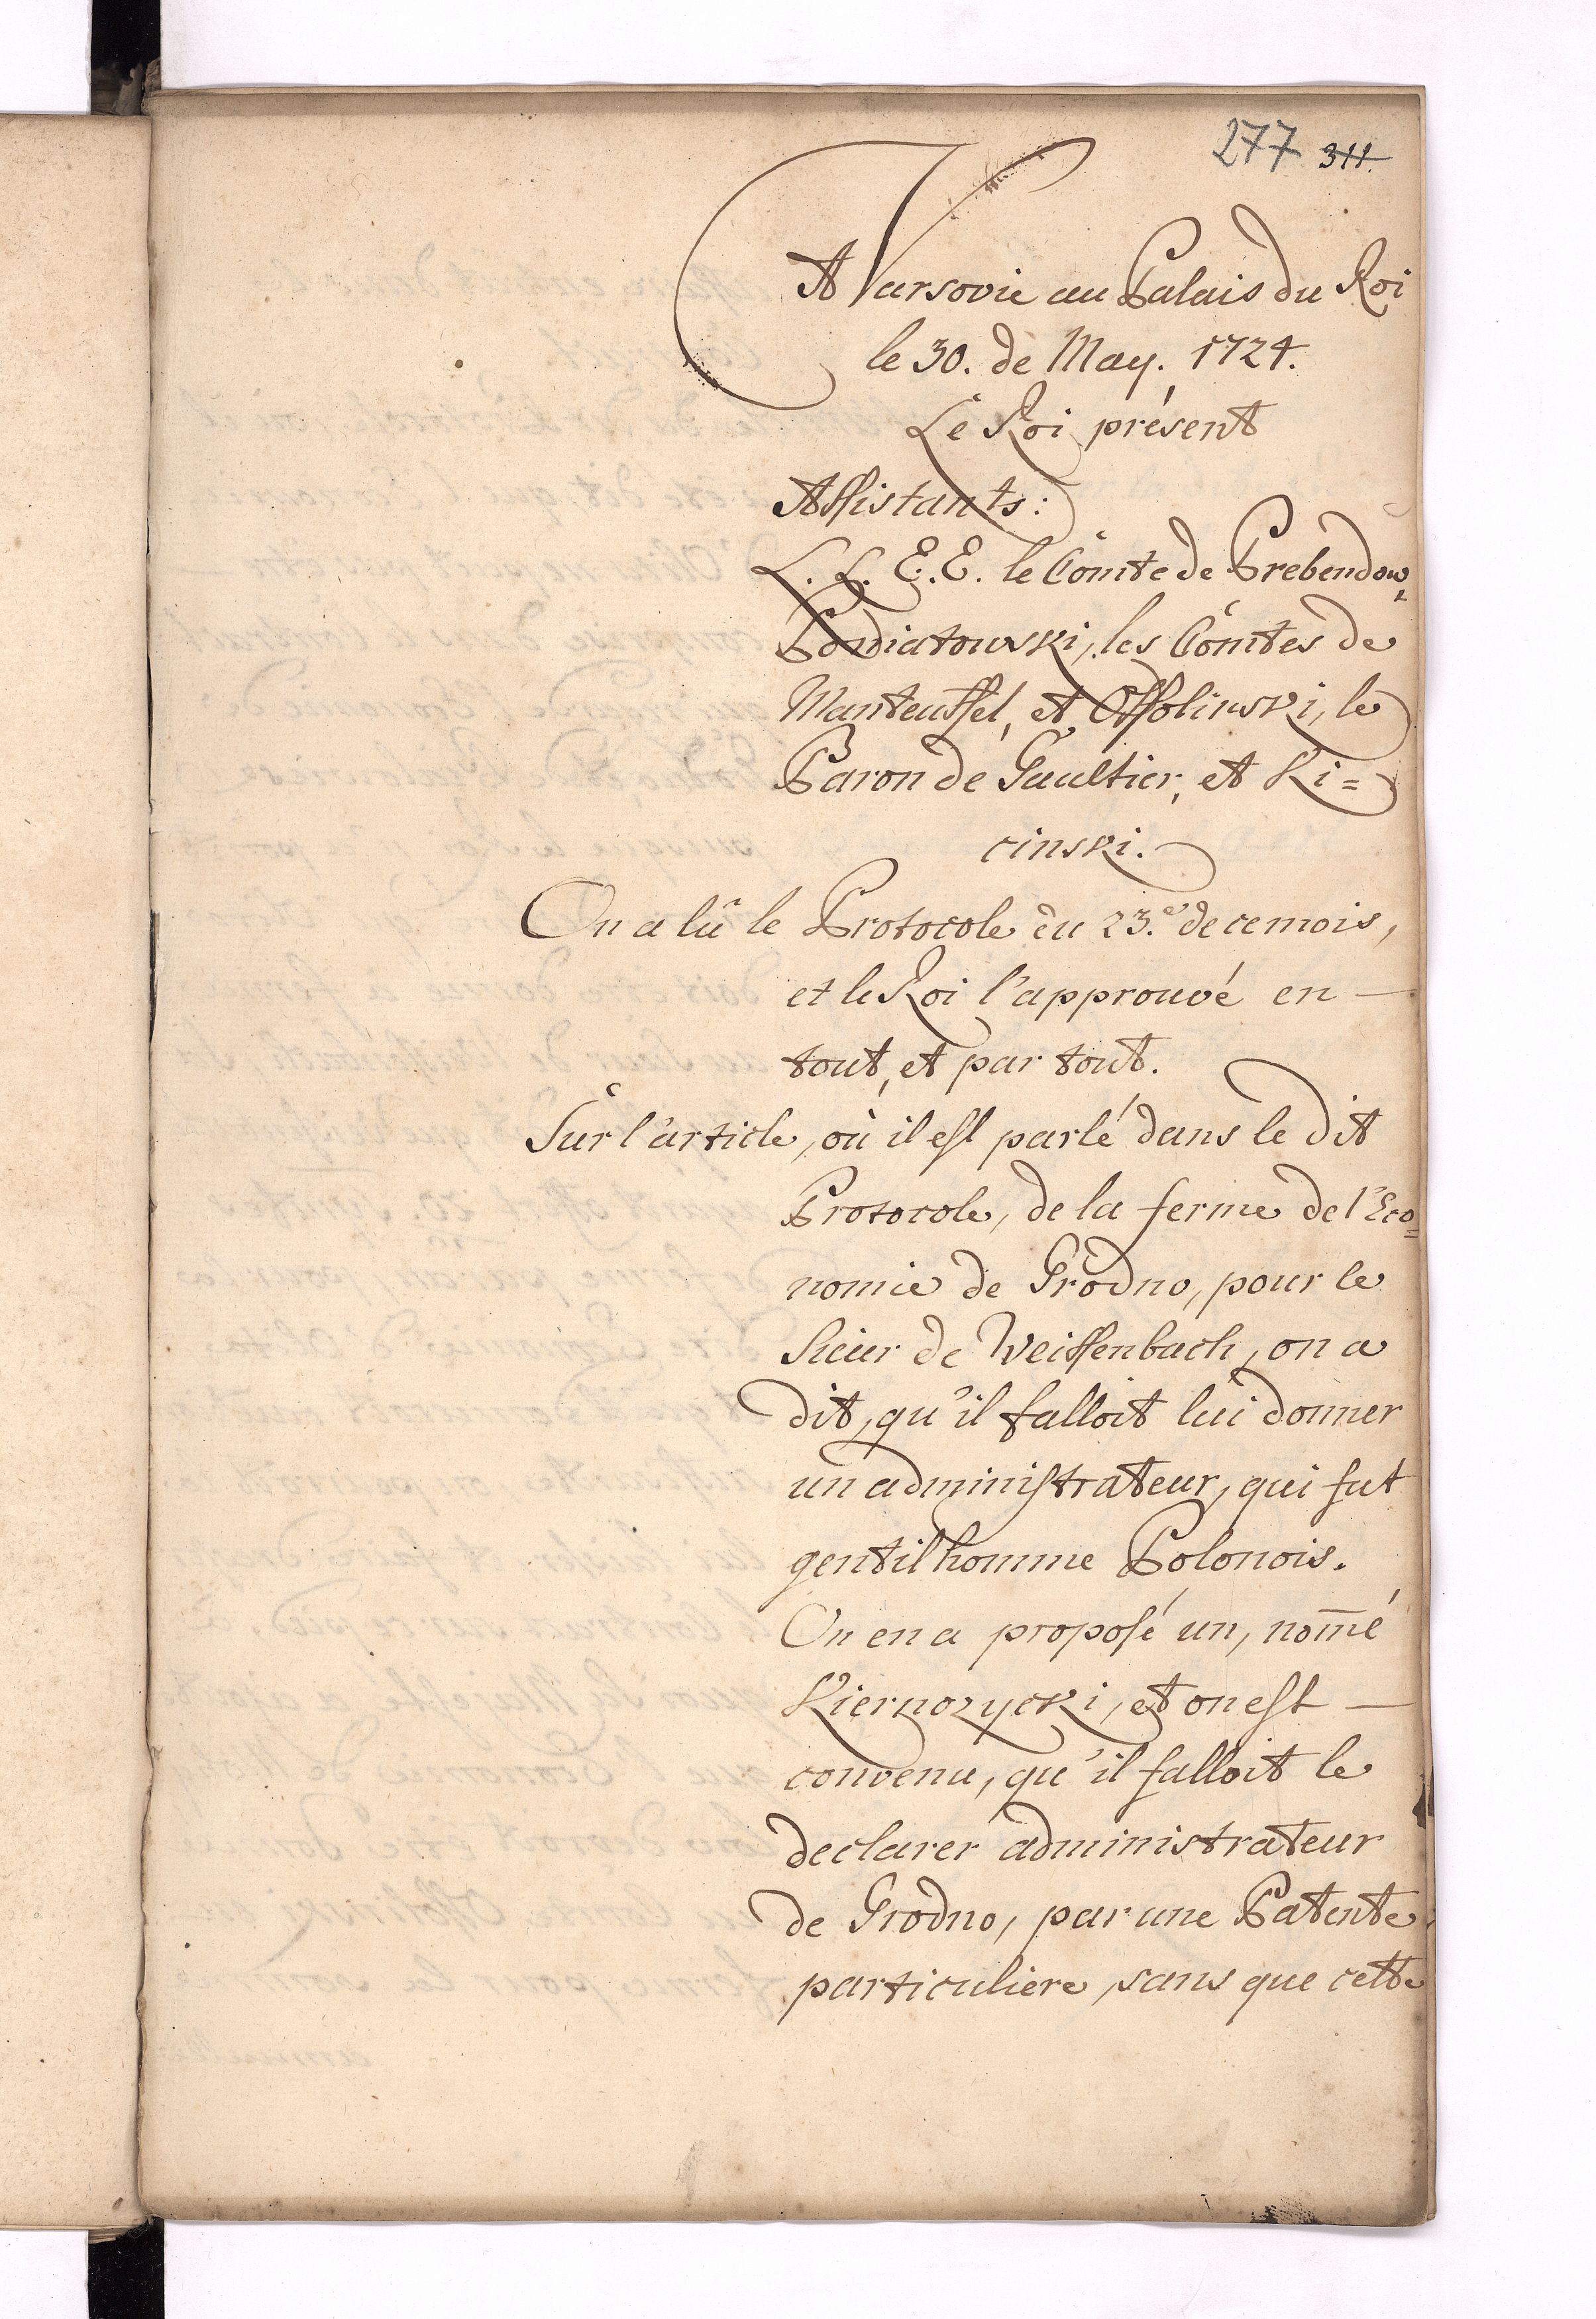 277 311.
A Varsovie au Palais du Roi
le 30. de May. 1724.
Le Roi présent
Assistants:
L. L. E. E. le Comte de Prebendow,
Poniatowski, les Comtes de
Manteuffel, et Ossolinski, le
Baron de Gaultier, et Li=
cinski.
On a lû le Protocole du 23.e de ce mois,
et le Roi l'approuvé en —
tout, et par tout.
Sur l'article, où il est parlé dans le dit
Protocole, de la ferme de l'Eco=
nomie de Grodno, pour le
Sieur de Weissenbach, on a
dit, qu'il falloit lui donner
un administrateur, qui fut
gentilhomme Polonois.
On en a proposé un, nom̄é
Kiernozycki, et on est —
convenu, qu'il falloit le
declarer administrateur
de Grodno, par une Patente
particuliere, sans que cette